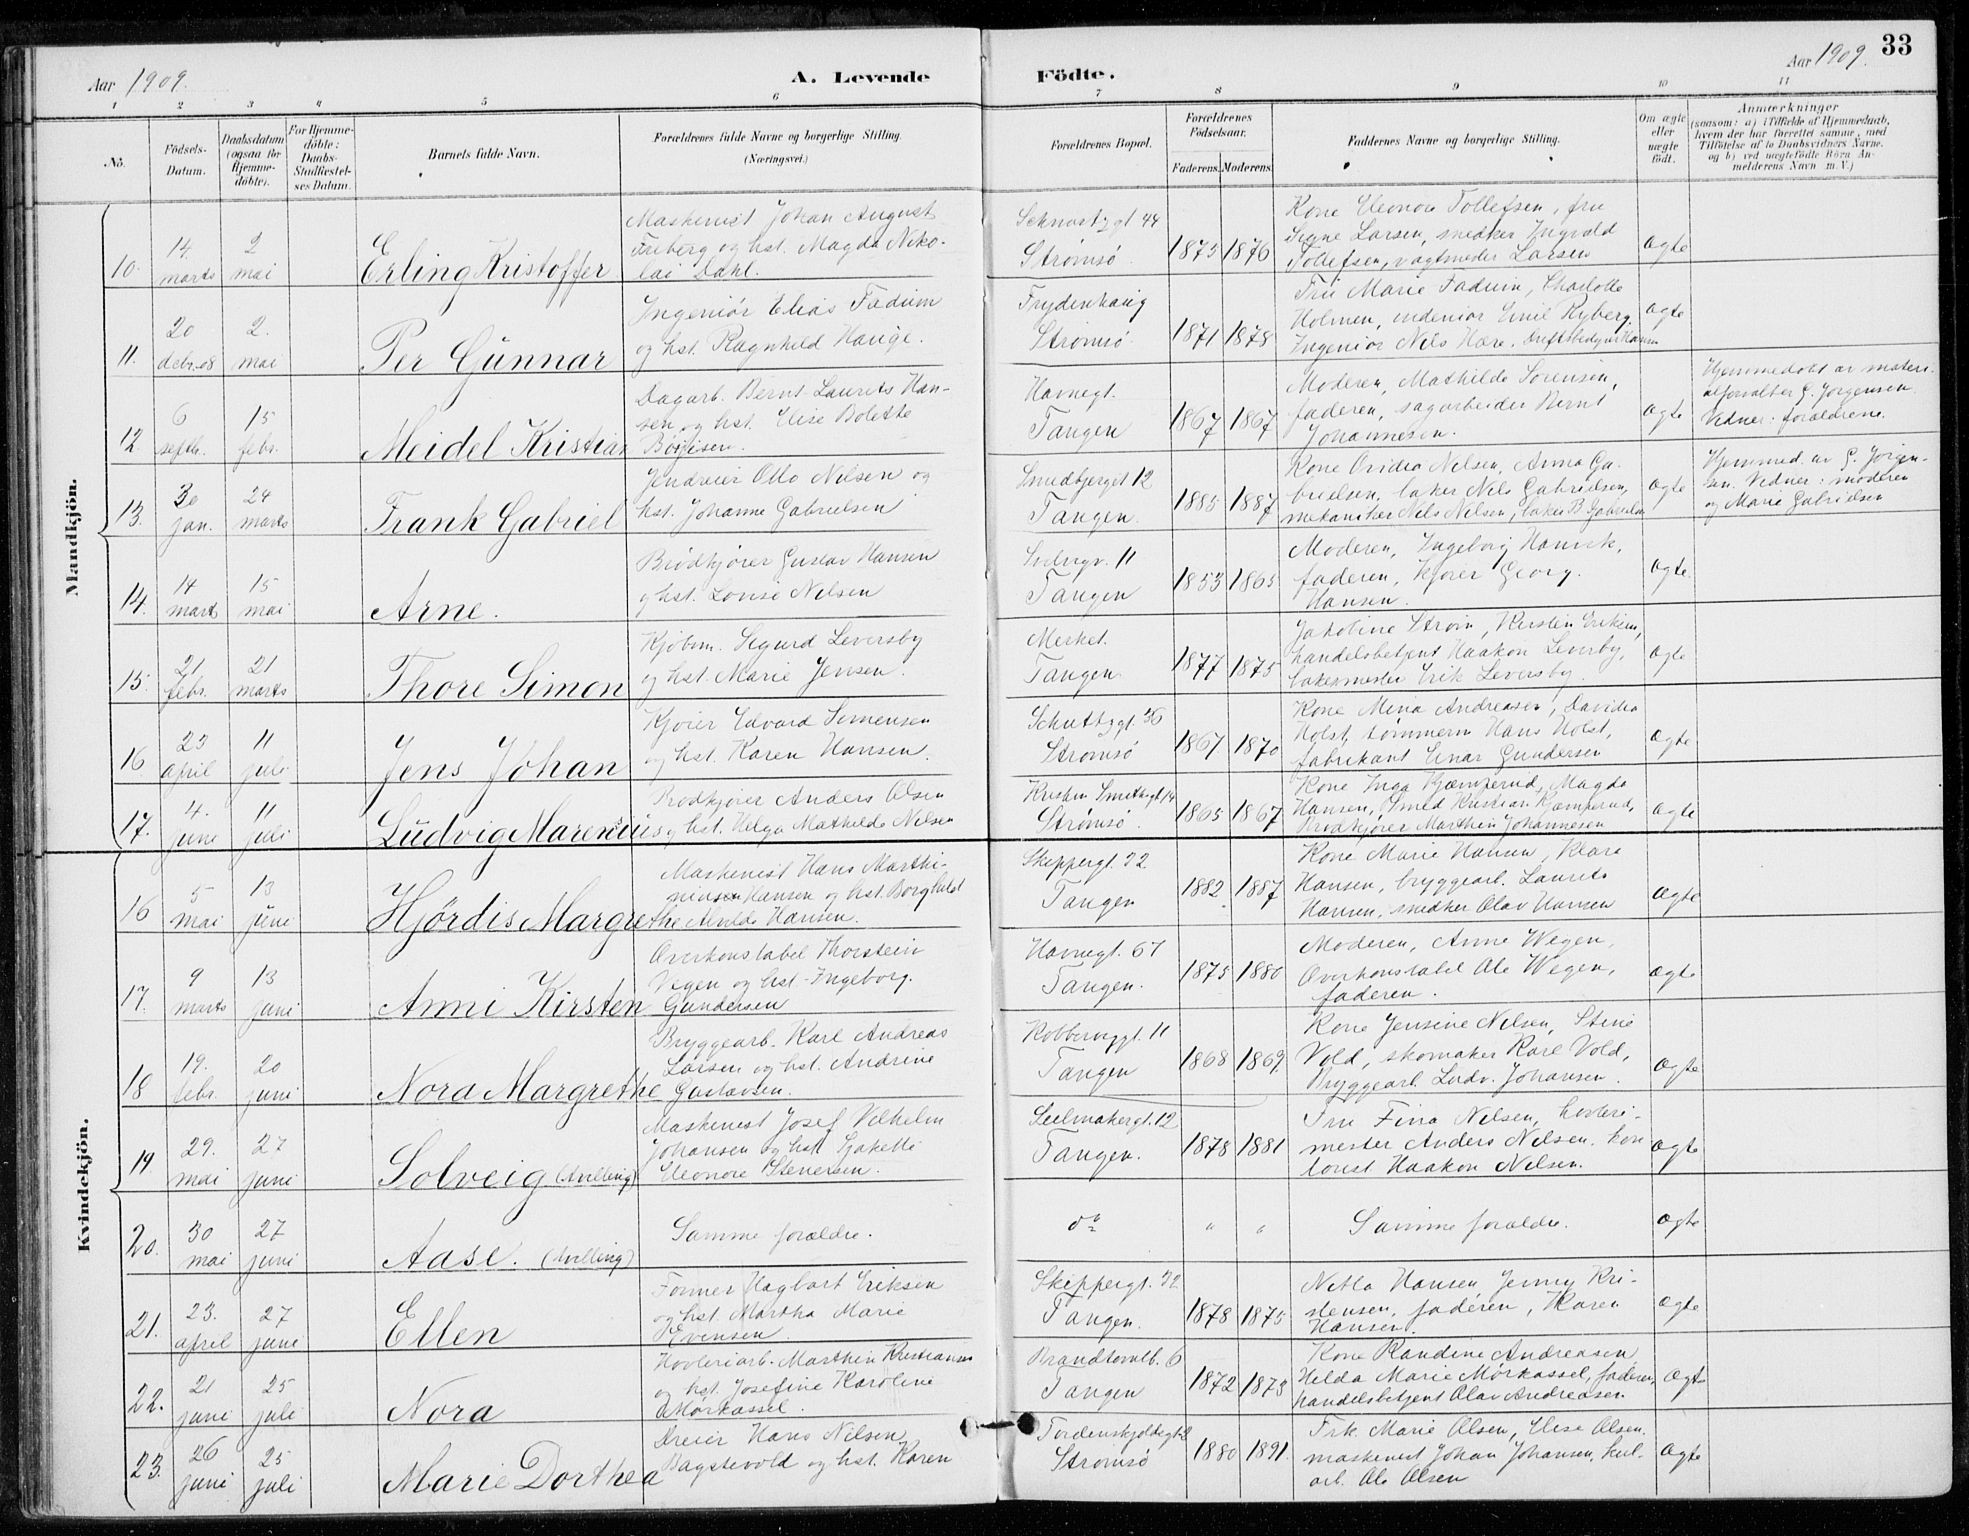 Aar 1909.
A. Levende
Födte.
Aar 1909.
33
1 2 3 4 5 6 7 8 9 10 11
No.
Födsels-Datum.
Daabsdatum (ogsaa for Hjemme-döbte).
For Hjemme-döbte: Daabs-Stadfæstel-ses Datum.
Barnets fulde Navn.
Forældrenes fulde Navne og borgerlige Stilling. (Næringsvei.)
Forældrenes Bopæl.
Forældrenes Födselsaar.
Faderens. Moderens.
Faddernes Navne og borgerlige Stilling.
Om ægte eller uægte födt.
Anmærkninger
(saasom: a) i Tilfælde af Hjemmedaab, hvem der har forrettet samme, med Tilföielse af to Daabsvidners Navne. og b) ved uægtefödte Börn An-melderens Navn m. V.)
Mandkjön.
10. 14. marts 2 mai Erling Kristoffer
Maskenist Johan August
Freberg og hst. Magda Niko-
lai Dahl.
Schwartzgt 44
Strømsö.
1875 1876
Kone Eleonora Tollefsen, fru
Signe Larsen, snedker Ingvald
Tollefsen, vagtmeder Larsen
Ægte
11. 20 debr. 08 2. mai Per Gunnar
Ingeniör Elias Fadum
og hst. Ragnhild Hauge.
Frydenhaug
Strømsö.
1871 1878
Fru Marie Fadum, Charlotte
Holmen, ingeniör Emil Ryberg,
Ingeniör Nils Hære, Driftsbestyrer Hansen
Ægte
12. 6 septb. 15 febr. Meidel Kristian
Dagarb. Bernt Laurits Han-
sen og hst. Elise Bolette
Havnegt.
Tangen
1867 1867
Moderen, Mathilde Sörensen,
faderen, sagarbeider Bernt
Johannesen.
Ægte
Hjemmedöbt av materi-
alforvalter G. Jörgensen.
Vidner: forældrene.
13. 30 jan. 24 marts Frank Gabriel
Jerndreier Otto Nilsen og
hst. Johanne Gabrielsen
Smedbjerget 12
Tangen.
1885 1887
Kone Ovidia Nilsen, Anna Ga-
brielsen, baker Nils Gabrielsen,
mekaniker Nils Nilsen, baker B. Gabrielsen
Ægte
Hjemmed. av G. Jörgen-
sen. Vidner: moderen
og Marie Gabrielsen
14. 14 marts 15 mai Arne.
Brödkjörer Gustav Hansen
og hst. Lovise Nilsen
11
Tangen
1853 1865
Moderen, Ingeborg Hanvik,
faderen, Kjörer Georg
Hansen.
Ægte
15. 21 febr. 21 marts Thore Simon
Kjöbm. Sigurd Leversby
og hst. Marie Jensen.
Merket.
Tangen
1877 1875
Jakobine Ström, Kirsten Eriksen,
handelsbetjent Haakon Leversby,
bakermester Erik Leversby.
Ægte
16. 23 april 11 juli Jens Johan
Kjörer Edvard Simensen
og hst. Karen Hansen.
Schultzgt. 36
Strömsö
1867 1870
Kone Mina Andreasen, Davidia
Holst, tömmerm Hans Holst,
fabrikant Einar Gundersen
Ægte
17. 4. juni 11 juli Ludvig Marenius
Brödkjörer Anders Olsen
og hst. Helga Mathilde Nilsen
Kristen Smithsgt. 14
Strömsö.
1865 1867
Kone Inga Kjæmperud, Magda
Hansen, Smed Kristian Kjæmperud,
Brödkjörer Marthin Johannesen
Ægte
Kvindekjön.
16 5 mai 13 juni Hjördis Margrethe
Maskenist Hans Marthi-
niusen Hansen og hst. Borghild
Alvilde Hansen.
Skippergt. 32
Tangen
1882 1887
Kone Marie Hansen, Klara
Hansen, bryggearb. Laurits
Hansen, snedker Olav Hansen
Ægte
17. 9 marts 13 juni Anni Kirsten
Overkonstabel Thorstein
Vegen og hst. Ingeborg
Gundersen
Havnegt. 67
Tangen.
1875 1880
Moderen, Anne Wegen,
Overkonstabel Ole Wegen,
faderen.
Ægte
18 19. febr. 20 juni Nora Margrethe
Bryggearb. Karl Andreas
Larsen og hst. Andrine
Gustavsen.
Kobberviggt. 11
Tangen
1868 1869
Kone Jensine Nilsen, Stine
Vold, skomaker Karl Vold,
Bryggearb. Ludv. Johansen.
Ægte
19. 29. mai 27 juni Solveig (tvilling)
Maskenist Josef Vilhelm
Johansen og hst Sjakette
Eleonore Stenersen.
Seilmakergt. 12
Tangen.
1878 1881
Fru Fina Nilsen, hövleri-
mester Anders Nilsen, kon
torist Haakon Nilsen.
Ægte
20. 30 mai 27 juni Aase. (tvilling)
Samme forældre.
do
" "
Samme forældre.
Ægte
21. 23. april 27 juni Ellen
Former Hagbart Eriksen
og hst. Martha Marie
Evensen
Skippergt. 32
Tangen.
1878 1875
Netta Hansen, Jenny Kri-
stensen, faderen, Karen
Hansen.
Ægte
22. 21 juni 25 juli Nora
Hövleriarb. Marthin Kristiansen
og hst. Josefine Karoline
Mörkassel.
Brandtomtb. 6
Tangen
1872 1873
Kone Randine Andreasen
Helda Marie Mörkassel, faderen,
handelsbetjent Olav Andreasen
Ægte
23. 26 juni 25 juli Marie Dorthea
Dreier Hans Nilsen
Bagstevold og hst. Karen
Tordenskjoldsgt. 2
Strömsö
1880 1891.
Frk. Marie Olsen, Elise Olsen,
maskenist Johan Johansen, kul-
arb. Ole Olsen
Ægte